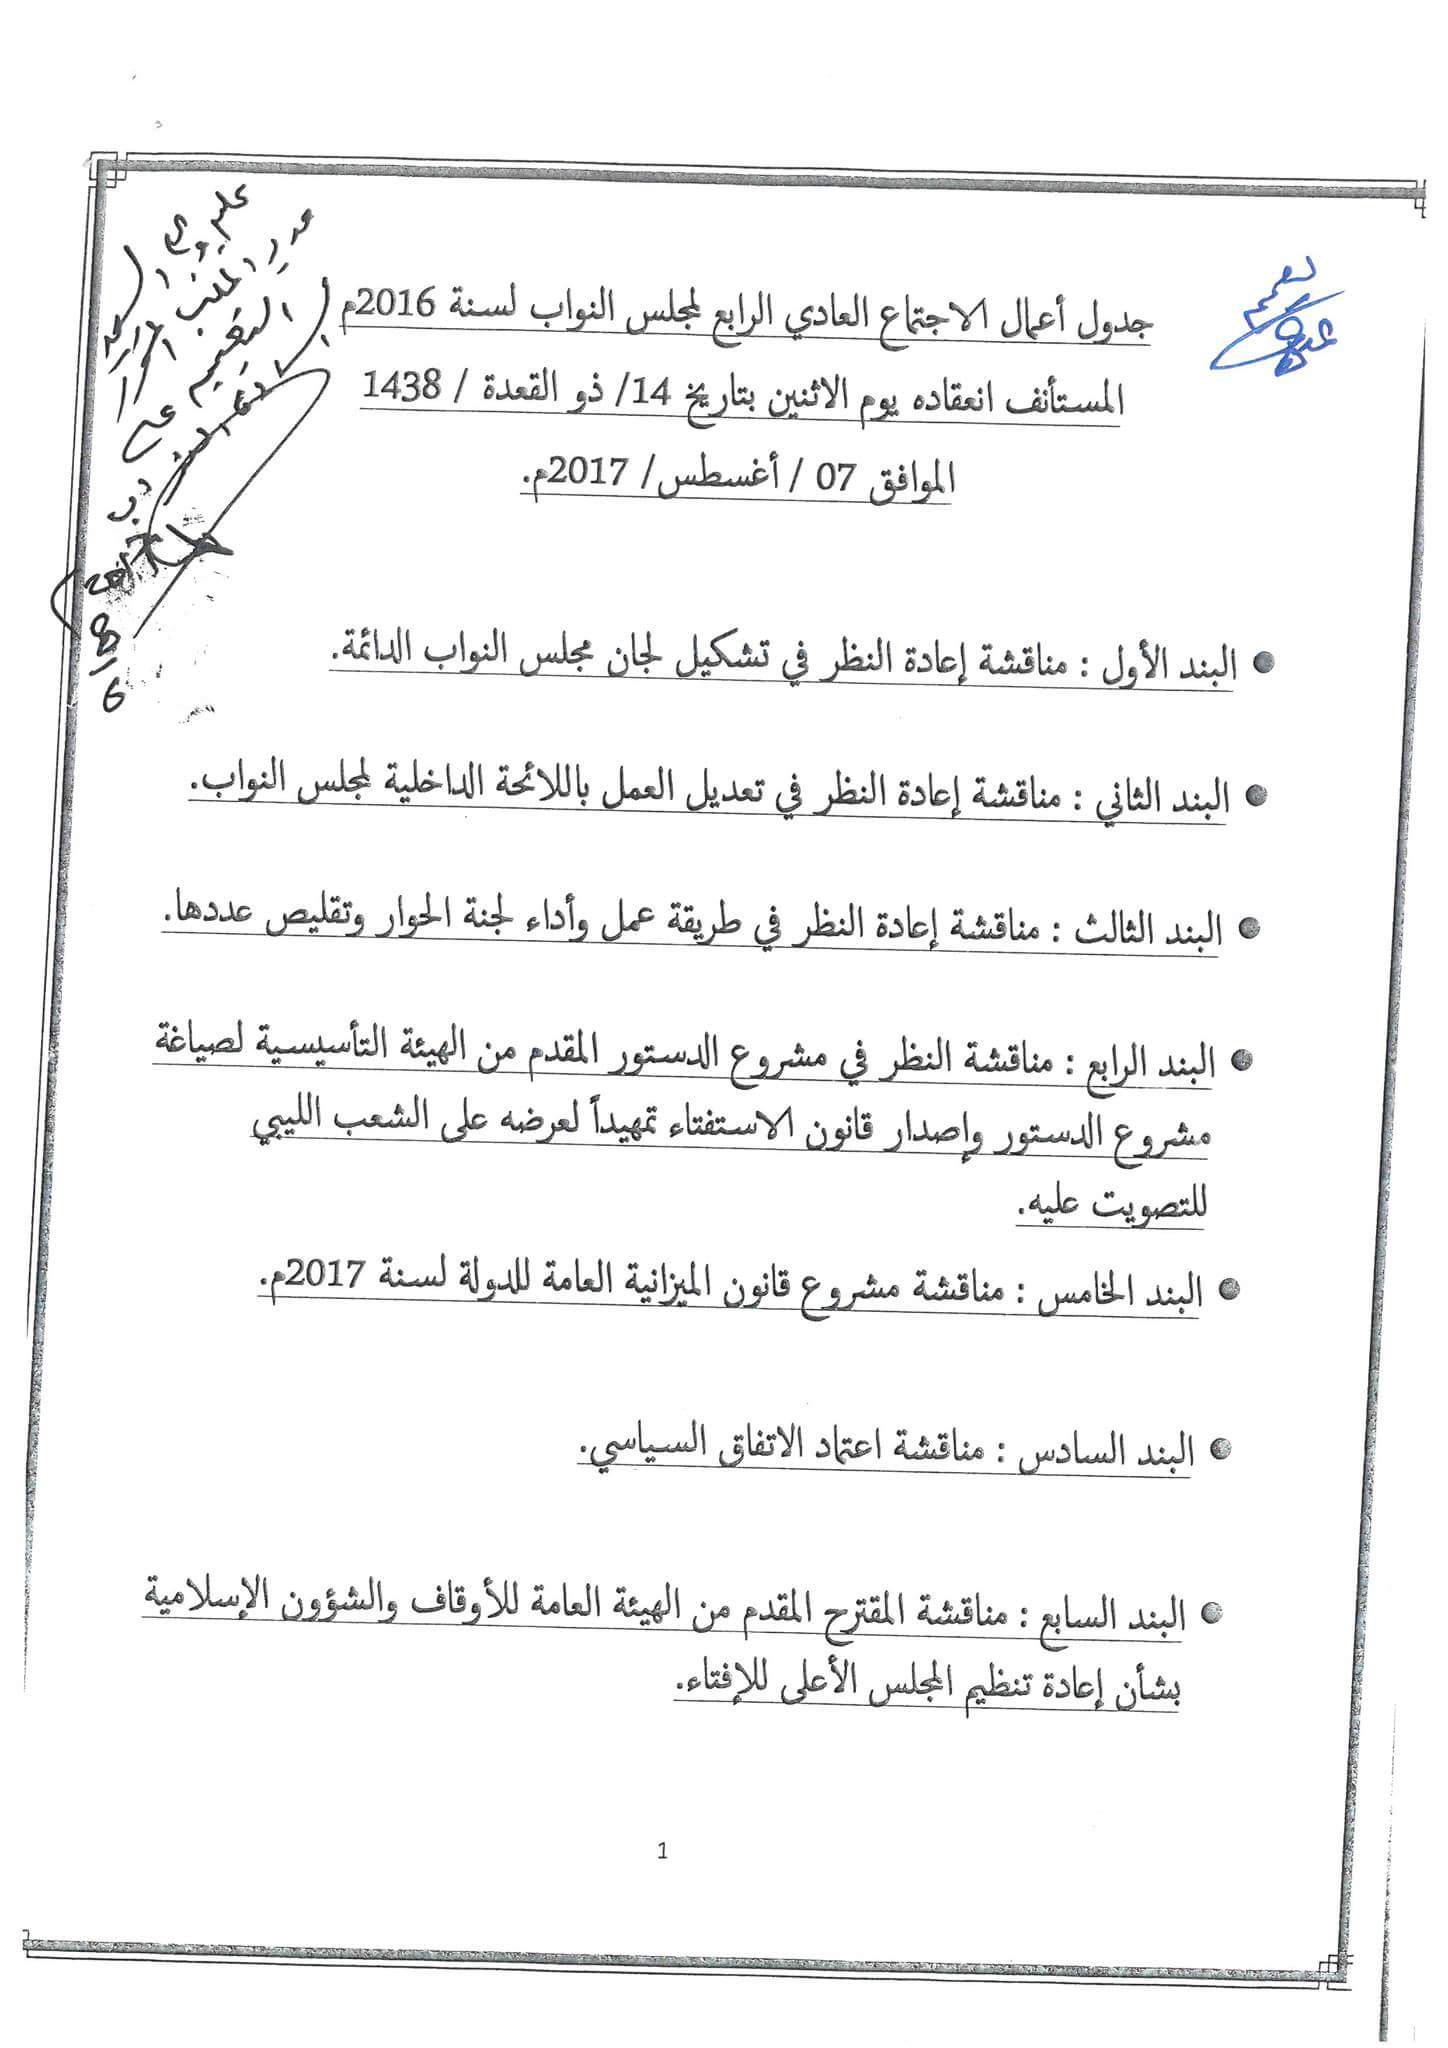 جدول أعمال الاجتماع العادي الرابع لمجلس النواب لسنة 2016م
المستأنف انعقاده يوم الاثنين بتاريخ 14/ ذو القعدة / 1438
الموافق 07 / أغسطس/ 2017م.
البند الأول : مناقشة إعادة النظر في تشكيل لجان مجلس النواب الدائمة.
البند الثاني : مناقشة إعادة النظر في تعديل العمل باللائحة الداخلية لمجلس النواب.
البند الثالث : مناقشة إعادة النظر في طريقة عمل وأداء لجنة الحوار وتقليص عددها.
البند الرابع : مناقشة النظر في مشروع الدستور المقدم من الهيئة التأسيسية لصياغة
مشروع الدستور وإصدار قانون الاستفتاء تمهيداً لعرضه على الشعب الليبي
للتصويت عليه.
البند الخامس : مناقشة مشروع قانون الميزانية العامة للدولة لسنة 2017م.
البند السادس : مناقشة اعتماد الاتفاق السياسي.
البند السابع : مناقشة المقترح المقدم من الهيئة العامة للأوقاف والشؤون الإسلامية
بشأن إعادة تنظيم المجلس الأعلى للإفتاء.
1